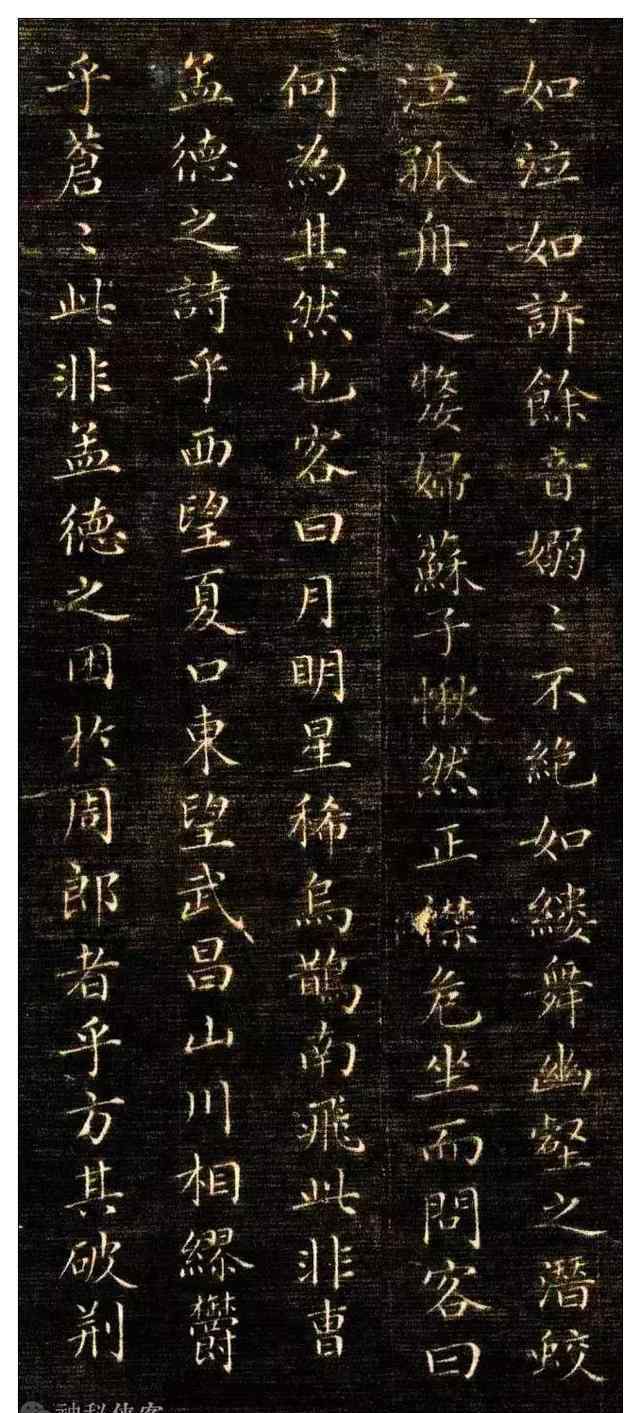 如泣如訴餘音嫋〻不絶如縷舞幽壑之潛蛟
泣孤舟之嫠婦蘇子愀然正襟危坐而問客曰
何為其然也客曰月明星稀烏鵲南飛此非曹
孟德之詩乎西望夏口東望武昌山川相繆欝
乎蒼〻此非孟德之困於周郎者乎方其破荆